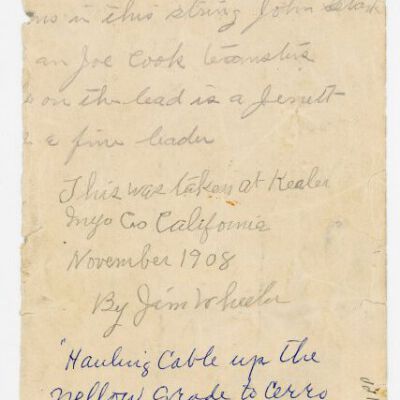 in this string John
an Joe Cook teamsters
on the lead is a Jenett
a fine leader
This was taken at Kealer
Inyo Co California
November 1908
By Jim Wheeler
"Hauling Cable up the
Yellow Grade to Cerro